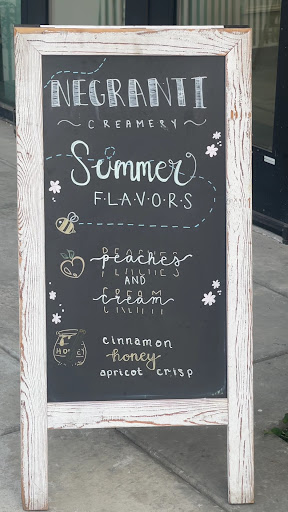 NEGRANTI
~ CREAMERY ~
Summer
F·L·A·V·O·R·S
peaches
AND
cream
cinnamon
HO
honey
apricot crisp